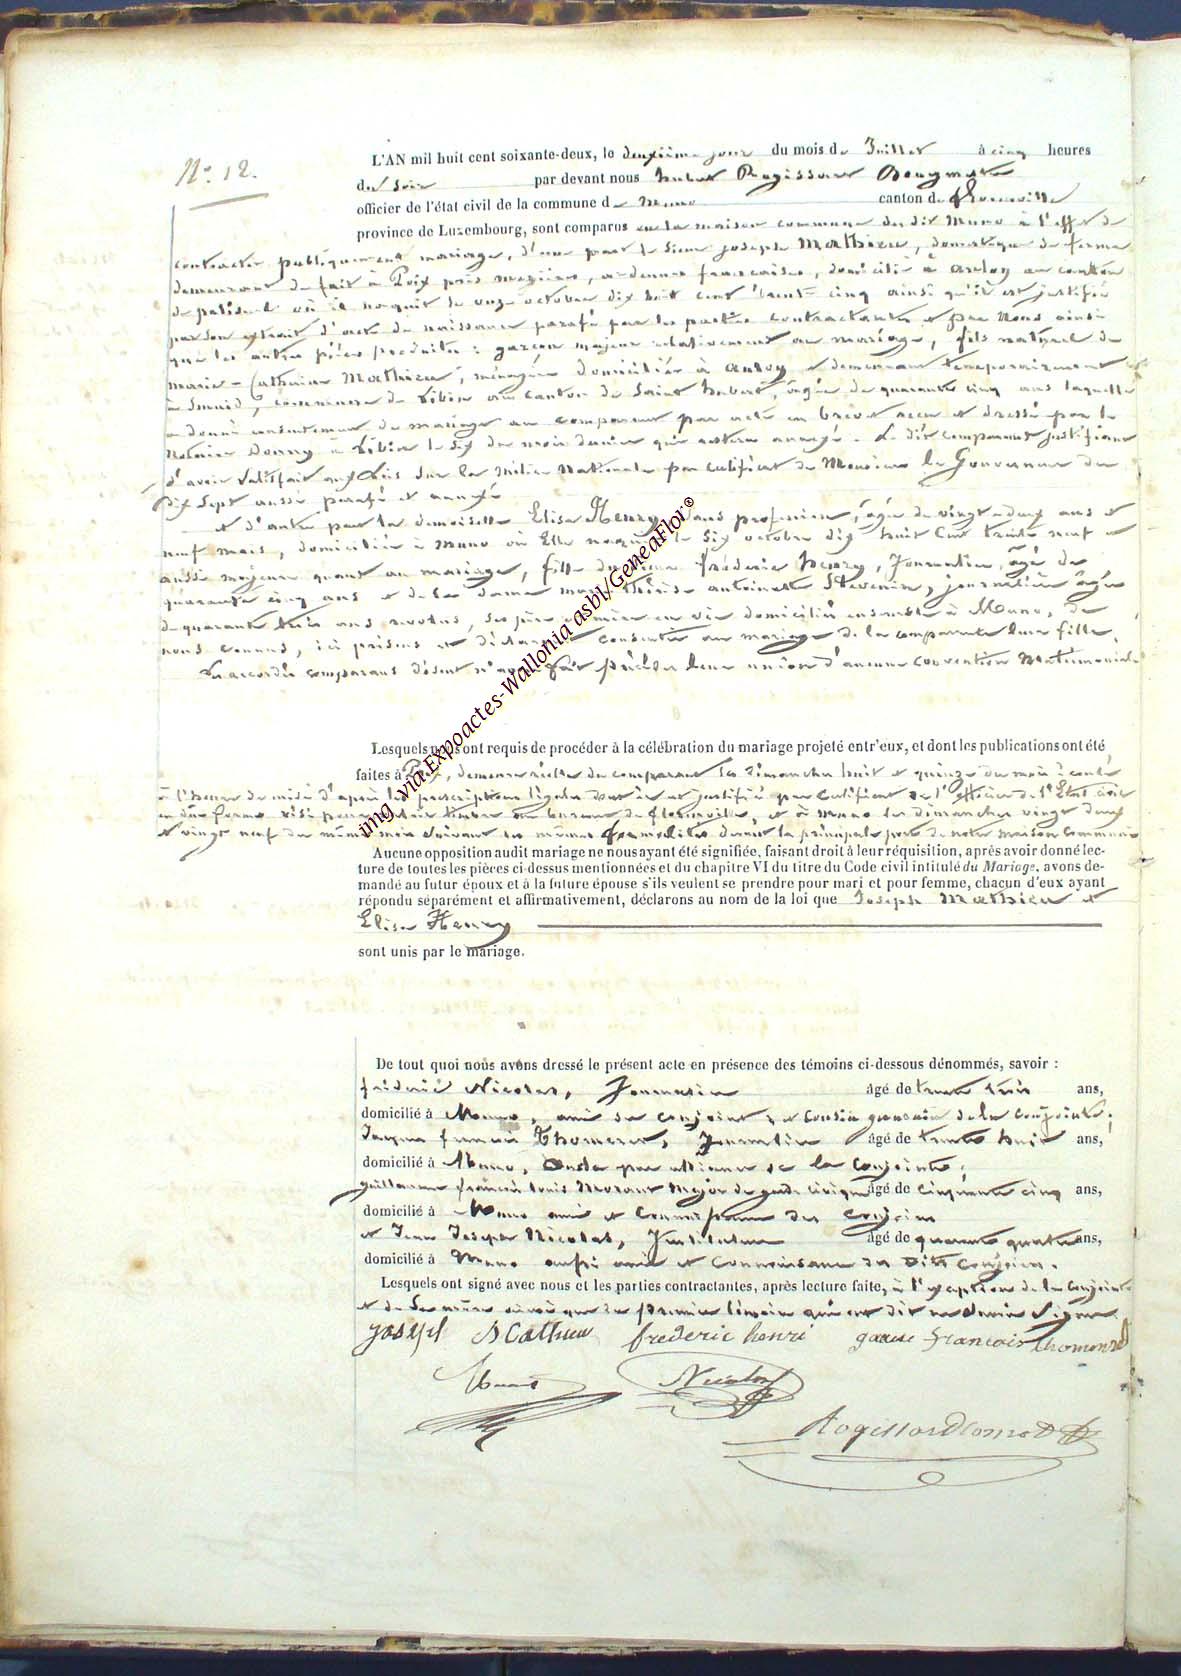 N° 12.
L'AN mil huit cent soixante-deux, le deuxième jour du mois de Juillet à cinq heures
du soir par devant nous hubert Rogissart Bourgmestre
officier de l'état civil de la commune de Muno canton de florenville
province de Luxembourg, sont comparus en la maison commune du dit Muno à l'effet de
contracter publiquement mariage, d'une part le sieur joseph Mathieu, domestique de ferme
demeurant de fait à Poix près mezières, ardennes francaises, domicilié à anloy au canton
de paliseul où il naquit le onze octobre dix huit cent trente cinq ainsi qu'il est justifié
par son extrait d'acte de naissance parafé par les parties contractantes et par nous ainsi
que les autres pièces produites : garçon majeur relativement au mariage, fils naturel de
marie-Catherine Mathieu, ménagère domiciliée à anloy et demeurant temporairement
à Smuid, commune de Libin au canton de Saint hubert, âgée de quarante cinq ans laquelle
a donné consentement de mariage au comparant par acte en brevet reçu et dressé par le
Notaire à Libin le six du mois dernier qui restera annexé. Le dit comparant justifiant
d'avoir satisfait aux Lois sur la Milice Nationale par certificat de Monsieur le Gouverneur du
dix Sept aussi parafé et annexé
et d'autre part la demoiselle Elisa Henry, sans profession, âgée de vingt deux ans et
neuf mois, domiciliée à Muno où Elle naquit le six octobre dix huit Cent trente neuf et
aussi majeure quant au mariage, fille du sieur fréderic henry, Journalier, âgé de
quarante cinq ans et de la dame marie thérèse antoinette Stevenin, journalière âgée
de quarante trois ans révolus, ses père et mère en vie domiciliés ensemble à Muno, de
nous connus, ici présens et déclarant consentir au mariage de la comparante leur fille.
Les accordés comparans disent n'avoir fait précéder leur union d'aucune convention Matrimoniale
Lesquels nous ont requis de procéder à la célébration du mariage projeté entr'eux, et dont les publications ont été
faites à Poix, demeure réelle du comparant les Dimanches huit et quinze du mois écoulé
à l'heure de midi d'après les prescriptions légales dont il est justifié par Certificat de l'officier de l'Etat civil
en due forme visé pour timbre au bureau de florenville, et à Muno les dimanches vingt deux
et vingt neuf du même mois suivant les mêmes formalités devant la principale porte de notre maison Commune
Aucune opposition audit mariage ne nous ayant été signifiée, faisant droit à leur réquisition, après avoir donné lec-
ture de toutes les pièces ci-dessus mentionnées et du chapitre VI du titre du Code civil intitulé du Mariage, avons de-
mandé au futur époux et à la future épouse s'ils veulent se prendre pour mari et pour femme, chacun d'eux ayant
répondu séparément et affirmativement, déclarons au nom de la loi que Joseph Mathieu et
Elisa Henry
sont unis par le mariage.
De tout quoi nous avons dressé le présent acte en présence des témoins ci-dessous dénommés, savoir :
fréderic Nicolas, Journalier âgé de trente trois ans,
domicilié à Muno, ami du conjoint, et cousin germain de la conjointe;
Jacques francois Thomeret, Journalier âgé de trente huit ans,
domicilié à Muno, oncle par alliance de la conjointe;
guillaume françois louis Morant Major de garde civique âgé de cinquante cinq ans,
domicilié à Muno ami et connaissance des conjoins
et Jean Joseph Nicolas, Instituteur âgé de quarante quatre ans,
domicilié à Muno aussi ami et connaissance des Dits conjoins.
Lesquels ont signé avec nous et les parties contractantes, après lecture faite, à l'exception de la conjointe
et de sa mère ainsi que du premier témoin qui ont dit ne devoir signer
joseph Mathieu frederic henri francois
Nicolas
Rogissart
img via Expoactes-Wallonia asbl/GeneaFlor®